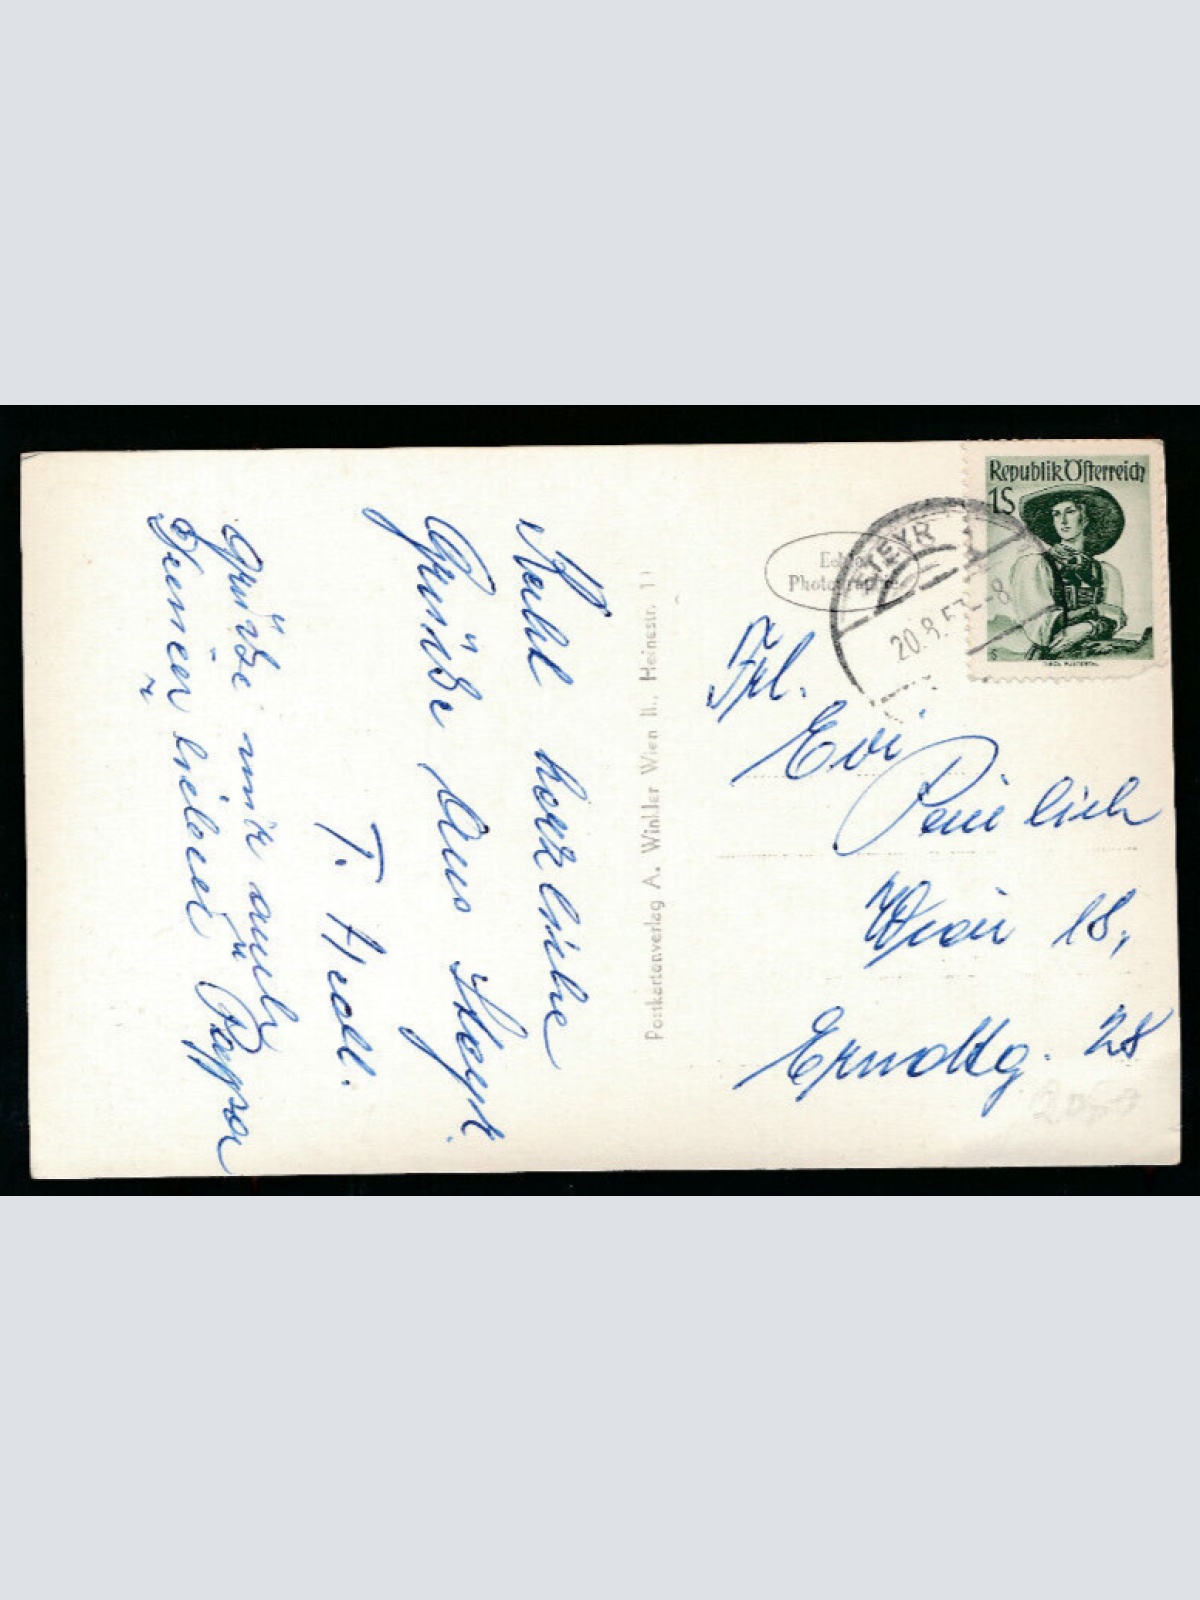 Recht herzliche
Grüße aus Steyr.
T. Hedl.
Grüße mir auch
Deinen lieben Papa
Postkartenverlag A. Winkler Wien II., Heinestr. 11
Echte
Photographie
STEYR
20.8.5 -8
Republik Österreich
1S
TIROL PUSTERTAL
Frl.
Evi
Wien 18,
Erndtg. 28